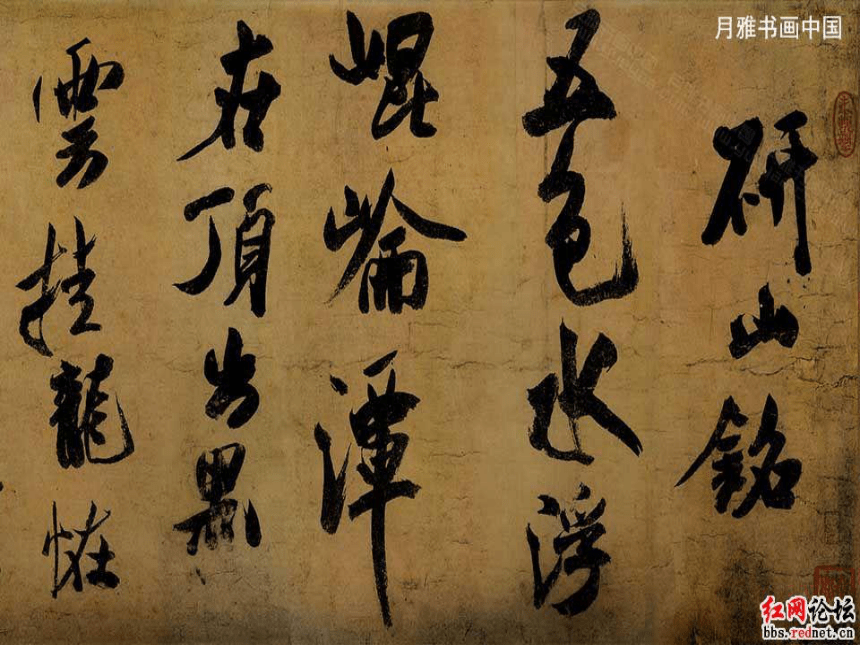 月雅书画中国
研山銘
五色水浮
崐崘潭
在頂出黑
雲挂龍恠
红网论坛
bbs.rednet.cn